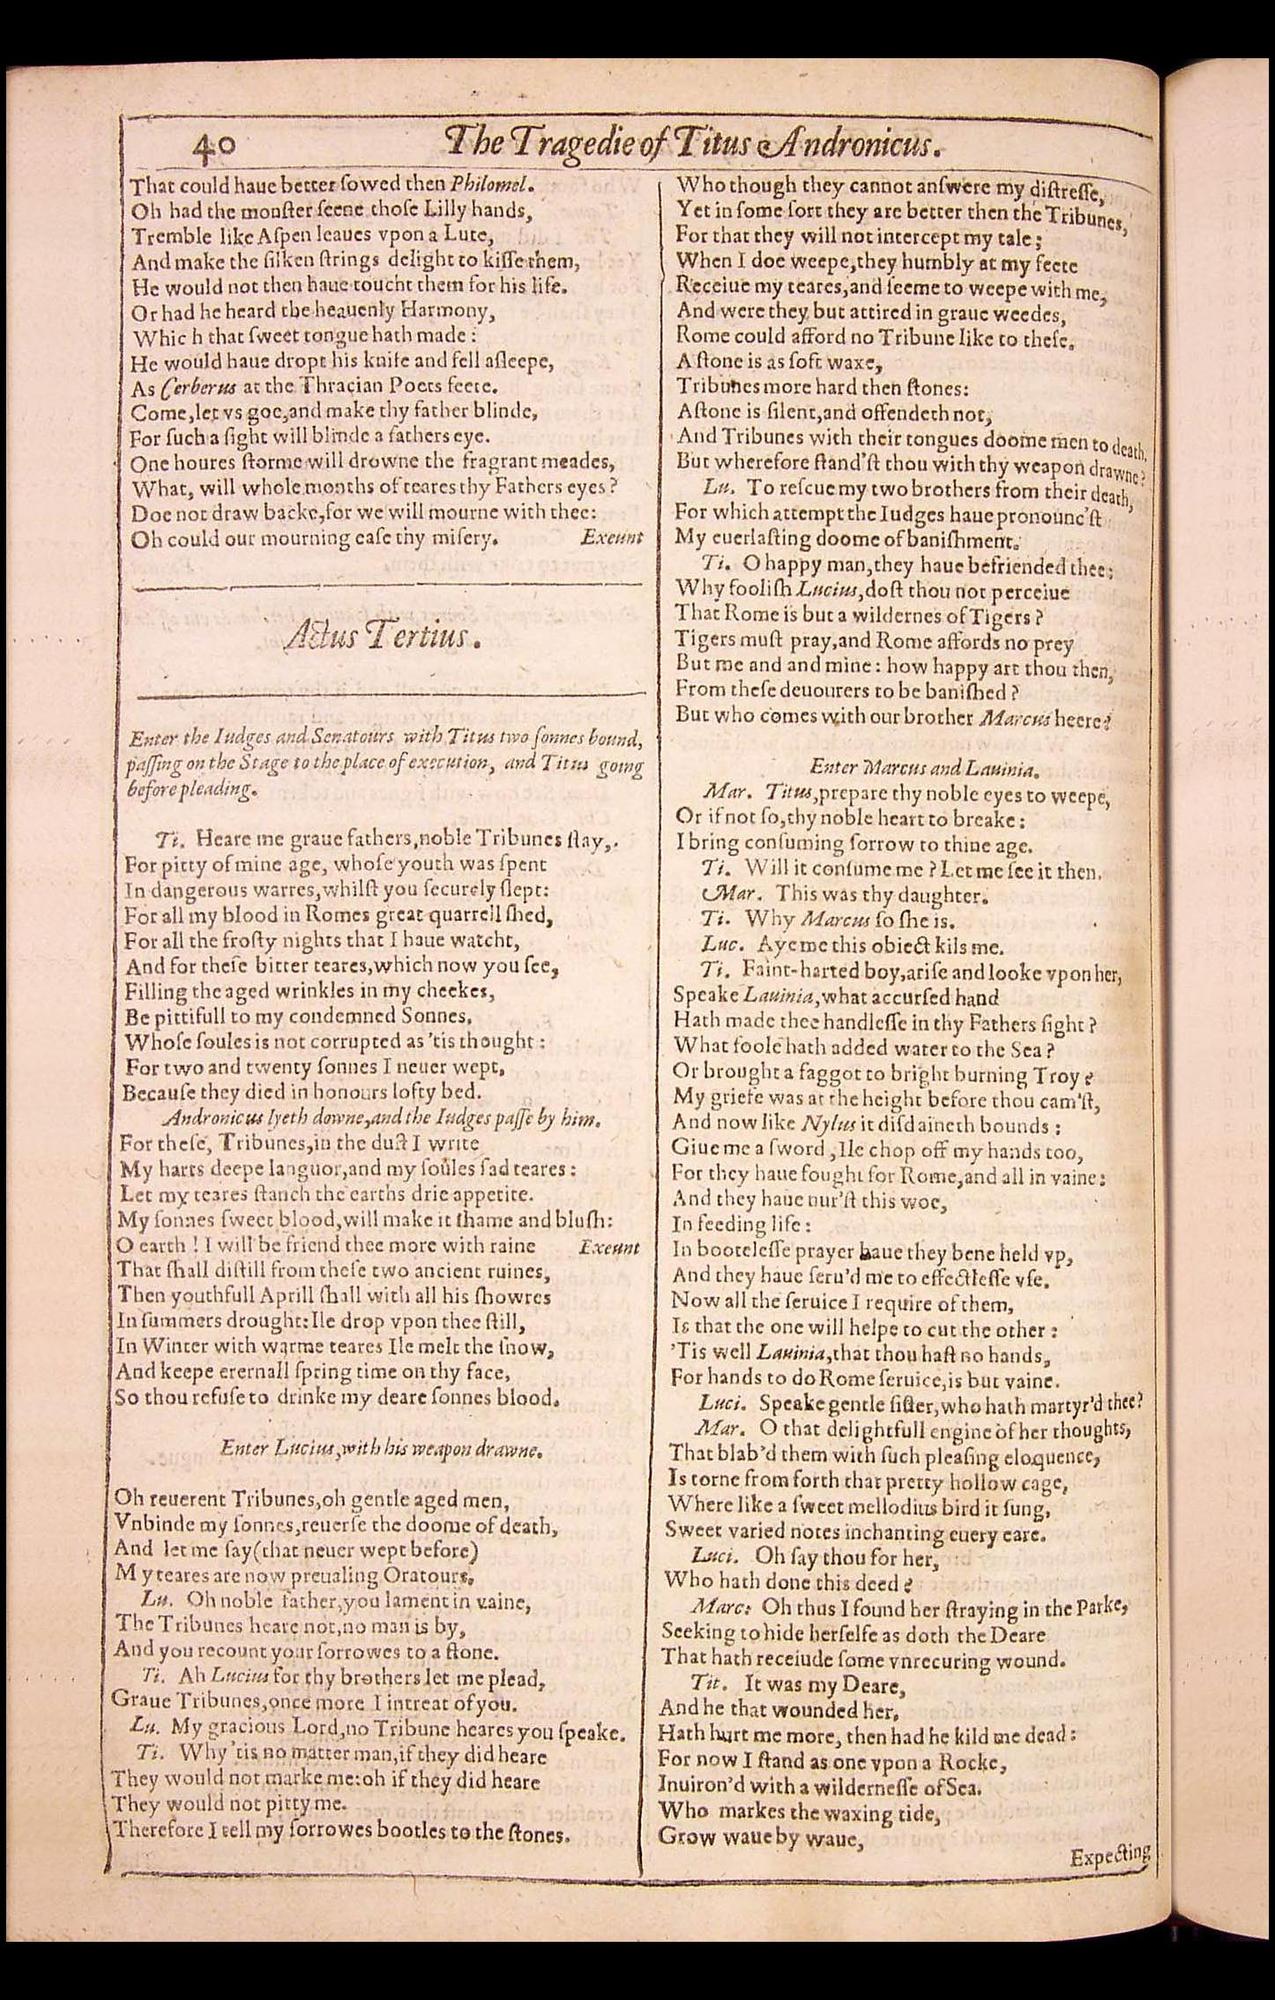 40
The Tragedie of Titus Andronicus.
That could haue better ſowed then Philomel.
Oh had the monſter ſeene thoſe Lilly hands,
Tremble like Aſpen leaues vpon a Lute,
And make the ſilken ſtrings delight to kiſſe them,
He would not then haue toucht them for his life.
Or had he heard the heauenly Harmony,
Whic h that ſweet tongue hath made:
He would haue dropt his knife and fell aſleepe,
As Cerberus at the Thracian Poets feete.
Come, let vs goe, and make thy father blinde,
For ſuch a ſight will blinde a fathers eye.
One houres ſtorme will drowne the fragrant meades,
What, will whole months of teares thy Fathers eyes?
Doe not draw backe, for we will mourne with thee:
Oh could our mourning eaſe thy miſery. Exeunt
Actus Tertius.
Enter the Iudges and Senatours with Titus two ſonnes bound,
paſſing on the Stage to the place of execution, and Titus going
before pleading.
Ti. Heare me graue fathers, noble Tribunes ſtay,
For pitty of mine age, whoſe youth was ſpent
In dangerous warres, whilſt you ſecurely ſlept:
For all my blood in Romes great quarrell ſhed,
For all the froſty nights that I haue watcht,
And for theſe bitter teares, which now you ſee,
Filling the aged wrinkles in my cheekes,
Be pittifull to my condemned Sonnes,
Whoſe ſoules is not corrupted as 'tis thought:
For two and twenty ſonnes I neuer wept,
Becauſe they died in honours lofty bed.
Andronicus lyeth downe, and the Iudges paſſe by him.
For theſe, Tribunes, in the duſt I write
My harts deepe languor, and my ſoules ſad teares:
Let my teares ſtanch the earths drie appetite.
My ſonnes ſweet blood, will make it ſhame and bluſh:
O earth! I will be friend thee more with raine Exeunt
That ſhall diſtill from theſe two ancient ruines,
Then youthfull Aprill ſhall with all his ſhowres
In ſummers drought: Ile drop vpon thee ſtill,
In Winter with warme teares Ile melt the ſnow,
And keepe erernall ſpring time on thy face,
So thou refuſe to drinke my deare ſonnes blood.
Enter Lucius, with his weapon drawne.
Oh reuerent Tribunes, oh gentle aged men,
Vnbinde my ſonnes, reuerſe the doome of death,
And let me ſay (that neuer wept before)
My teares are now preualing Oratours.
Lu. Oh noble father, you lament in vaine,
The Tribunes heare not, no man is by,
And you recount your ſorrowes to a ſtone.
Ti. Ah Lucius for thy brothers let me plead,
Graue Tribunes, once more I intreat of you.
Lu. My gracious Lord, no Tribune heares you ſpeake.
Ti. Why 'tis no matter man, if they did heare
They would not marke me: oh if they did heare
They would not pitty me.
Therefore I tell my ſorrowes bootles to the ſtones.
Who though they cannot anſwere my diſtreſſe,
Yet in ſome ſort they are better then the Tribunes,
For that they will not intercept my tale;
When I doe weepe, they humbly at my feete
Receiue my teares, and ſeeme to weepe with me,
And were they but attired in graue weedes,
Rome could afford no Tribune like to theſe.
A ſtone is as ſoft waxe,
Tribunes more hard then ſtones:
A ſtone is ſilent, and offendeth not,
And Tribunes with their tongues doome men to death.
But wherefore ſtand'ſt thou with thy weapon drawne?
Lu. To reſcue my two brothers from their death,
For which attempt the Iudges haue pronounc'ſt
My euerlaſting doome of baniſhment.
Ti. O happy man, they haue befriended thee:
Why fooliſh Lucius, doſt thou not perceiue
That Rome is but a wildernes of Tigers?
Tigers muſt pray, and Rome affords no prey
But me and and mine: how happy art thou then,
From theſe deuourers to be baniſhed?
But who comes with our brother Marcus heere?
Enter Marcus and Lauinia.
Mar. Titus, prepare thy noble eyes to weepe,
Or if not ſo, thy noble heart to breake:
I bring conſuming ſorrow to thine age.
Ti. Will it conſume me? Let me ſee it then.
Mar. This was thy daughter.
Ti. Why Marcus ſo ſhe is.
Luc. Aye me this obiect kils me.
Ti. Faint-harted boy, ariſe and looke vpon her,
Speake Lauinia, what accurſed hand
Hath made thee handleſſe in thy Fathers ſight?
What foole hath added water to the Sea?
Or brought a faggot to bright burning Troy?
My griefe was at the height before thou cam'ſt,
And now like Nylus it diſdaineth bounds:
Giue me a ſword, Ile chop off my hands too,
For they haue fought for Rome, and all in vaine:
And they haue nur'ſt this woe,
In feeding life:
In booteleſſe prayer haue they bene held vp,
And they haue ſeru'd me to effectleſſe vſe.
Now all the ſeruice I require of them,
Is that the one will helpe to cut the other:
'Tis well Lauinia, that thou haſt no hands,
For hands to do Rome ſeruice, is but vaine.
Luci. Speake gentle ſiſter, who hath martyr'd thee?
Mar. O that delightfull engine of her thoughts,
That blab'd them with ſuch pleaſing eloquence,
Is torne from forth that pretty hollow cage,
Where like a ſweet mellodius bird it ſung,
Sweet varied notes inchanting euery eare.
Luci. Oh ſay thou for her,
Who hath done this deed?
Marc: Oh thus I found her ſtraying in the Parke,
Seeking to hide herſelfe as doth the Deare
That hath receiude ſome vnrecuring wound.
Tit. It was my Deare,
And he that wounded her,
Hath hurt me more, then had he kild me dead:
For now I ſtand as one vpon a Rocke,
Inuiron'd with a wilderneſſe of Sea.
Who markes the waxing tide,
Grow waue by waue,
Expecting